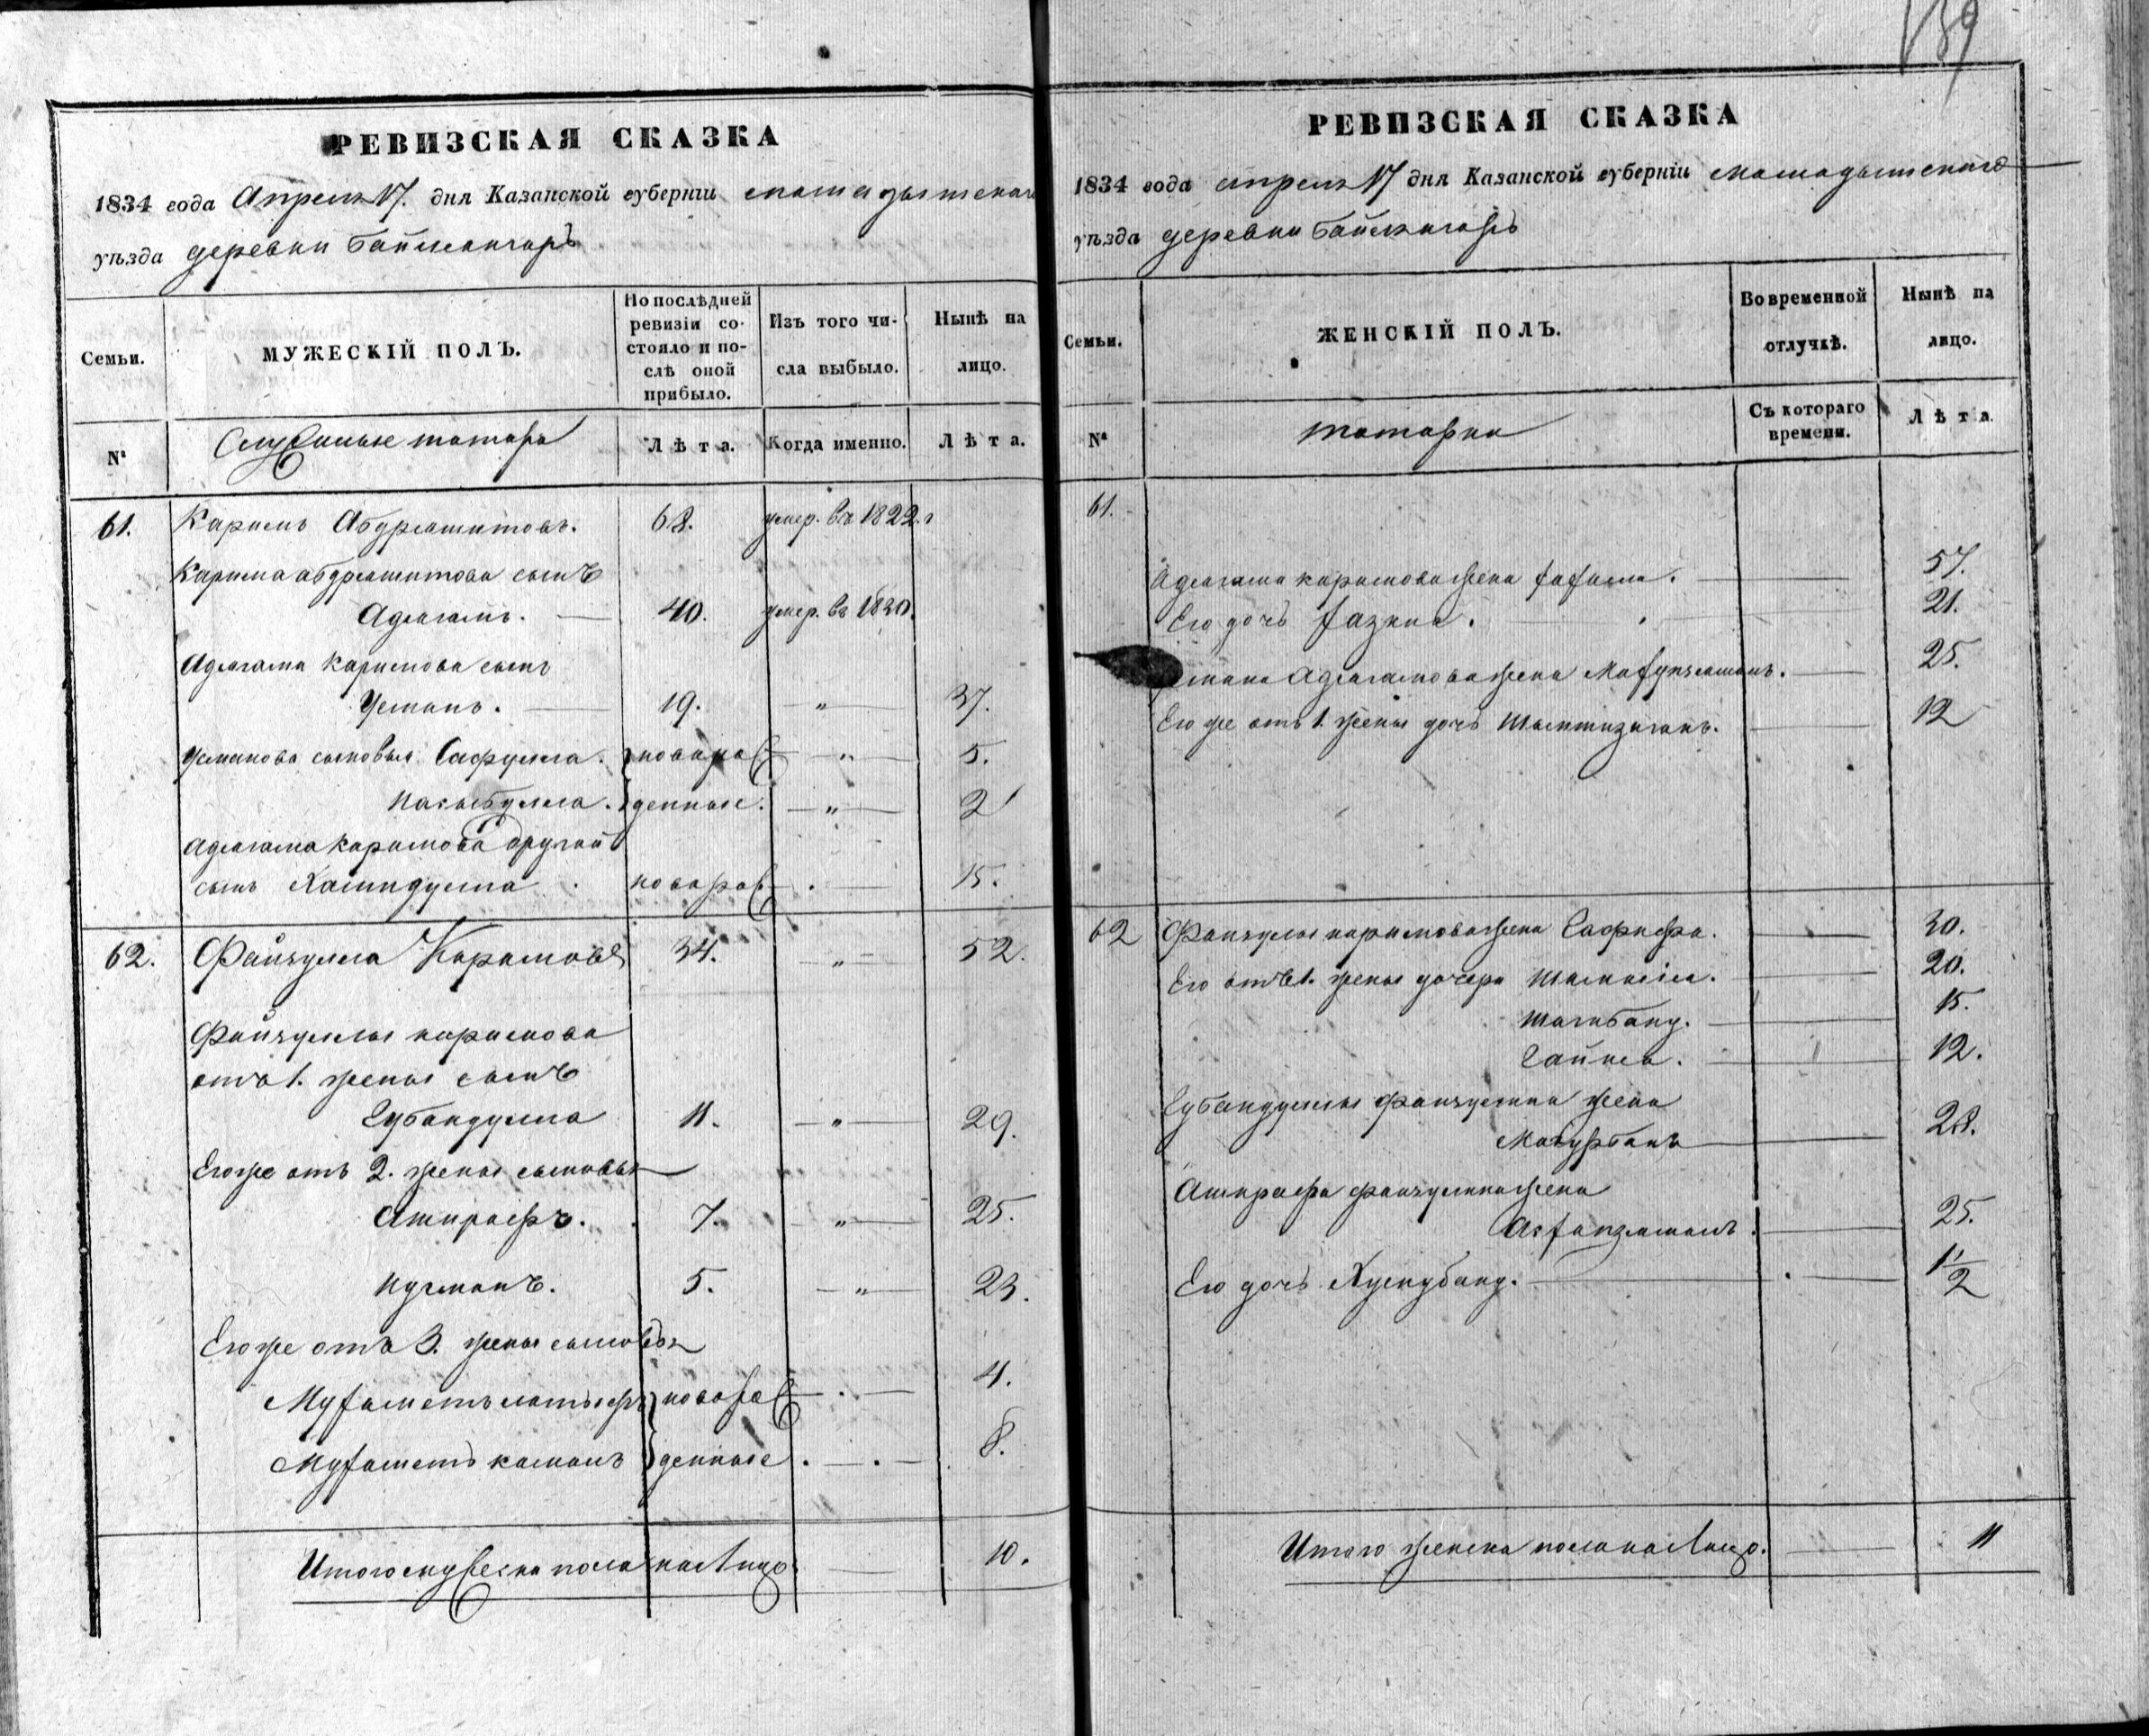 139
РЕВИЗСКАЯ СКАЗКА
1834 года Апреля 17. дня Казанской губерніи мамадышскаго
уѣзда деревни Баймангаръ
Семьи.
МУЖЕСКІЙ ПОЛЪ.
По послѣдней ревизіи состояло и послѣ оной прибыло.
Изъ того числа выбыло.
Нынѣ на лицо.
№
Служилые татара
Лѣта.
Когда именно.
Лѣта.
61. Каримъ Абдряшитовъ. 68. умер. въ 1822. г
Карима абдряшитова сынъ
Адлагамъ. 40. умер. въ 1830.
Адлагама Каримова сынъ
Усманъ. 19. " 37.
Усманова сыновья Сафулла. новорож " 5.
денные. " 2
Адлагама Каримова другой
сынъ Хамидулла новорож 15.
62. Файзулла Каримовъ 34. " 52.
Файзуллы каримова
отъ 1. жены сынъ
Губайдулла 11. " 29.
Его же отъ 2. жены сыновья
Ашрафъ. 7. " 25.
Нугманъ. 5. " 23.
Его же отъ 3. жены сыновья
Мухаметълатыфъ новорож 4.
Мухаметъ камалъ денные 8.
Итого мужеска пола налицо 10.
РЕВИЗСКАЯ СКАЗКА
1834 года апреля 17 дня Казанской губерніи мамадышскаго
уѣзда деревни Баймангаръ
Семьи.
ЖЕНСКІЙ ПОЛЪ.
Во временной отлучкѣ.
Нынѣ на лицо.
№
татарки
Съ котораго времени.
Лѣта.
61.
Адлагама каримова жена 57.
Его дочь 21.
Усмана Адлагамова жена 25.
Его же отъ 1. жены дочь 12
62 Файзуллы каримова жена 30.
Его отъ 1. жены дочери 20.
Шагибану. 15.
Гайша. 12.
Губайдуллы файзуллина жена
28.
Ашрафа файзуллина жена
25.
Его дочь Хуснубану. 1/2
Итого женска пола налицо. 11